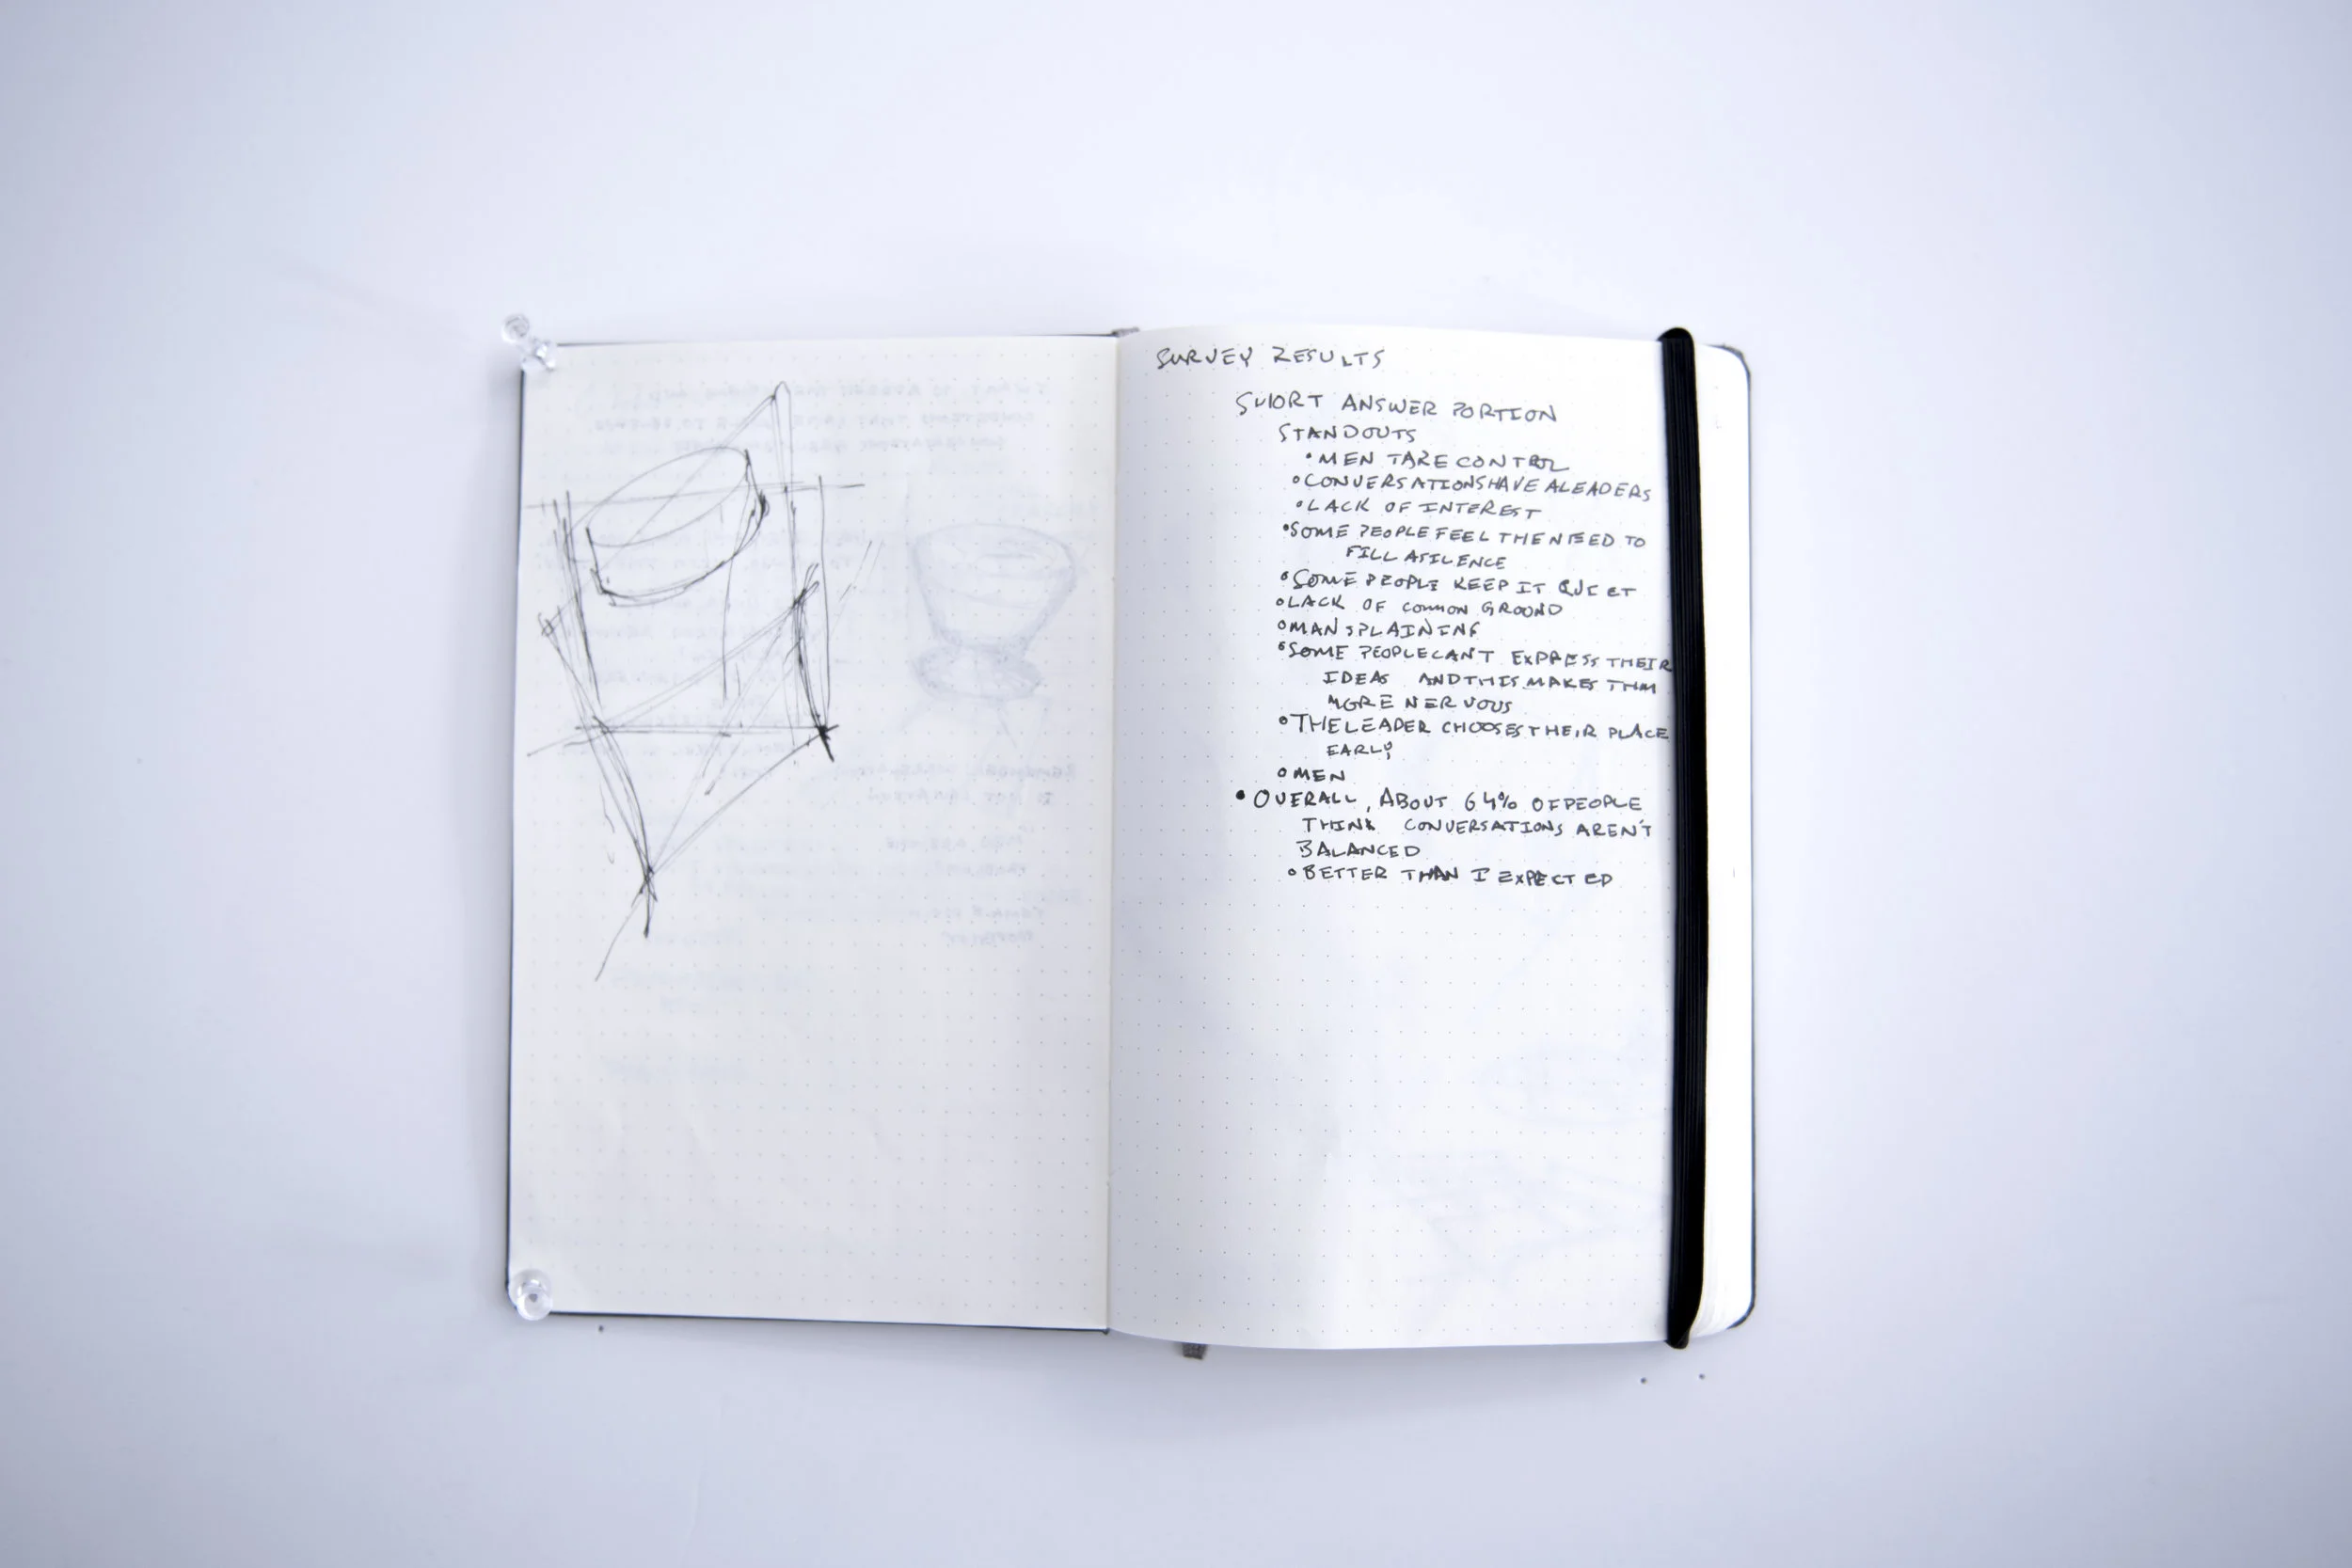 SURVEY RESULTS
SHORT ANSWER PORTION
STANDOUTS
• MEN TAKE CONTROL
• CONVERSATIONS HAVE A LEADERS
• LACK OF INTEREST
• SOME PEOPLE FEEL THE NEED TO
FILL A SILENCE
• SOME PEOPLE KEEP IT QUIET
• LACK OF COMMON GROUND
• MANSPLAINING
• SOME PEOPLE CANT EXPRESS THEIR
IDEAS AND THIS MAKES THM
MORE NERVOUS
• THE LEADER CHOOSES THEIR PLACE
EARLY
• MEN
• OVERALL, ABOUT 64% OF PEOPLE
THINK CONVERSATIONS AREN'T
BALANCED
• BETTER THAN I EXPECTED